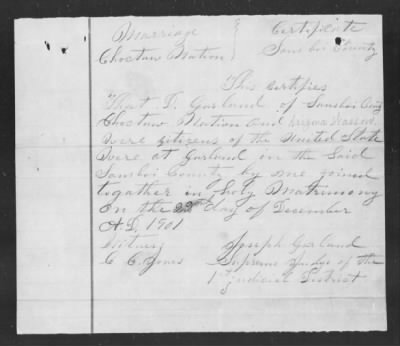 Marriage } Certificate
Choctaw Nation } Sans Boi County
This Certifies
That D. Garland of Sansboi County
Choctaw Nation and
were citizens of the United State
Were at Garland in the Said
Sansboi County by me joined
together in holy Matrimony
On the 22nd day of December
A.D. 1901
Witness Joseph Garland
C. C. Jones Supreme Judge of the
1st judicial District